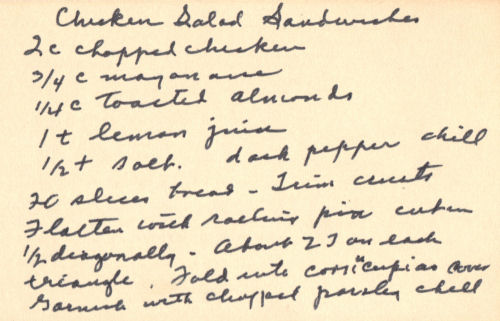 Chicken Salad Sandwiches
2 c chopped chicken
3/4 c mayonaise
1/4 c toasted almonds
1 t lemon juice
1/2 t salt. dash pepper chill
20 slices bread - Trim crusts
Flatten with rolling pin cut in
1/2 diagonally - About 2 T on each
triangle. Fold into cover
Garnish with chopped parsley chill